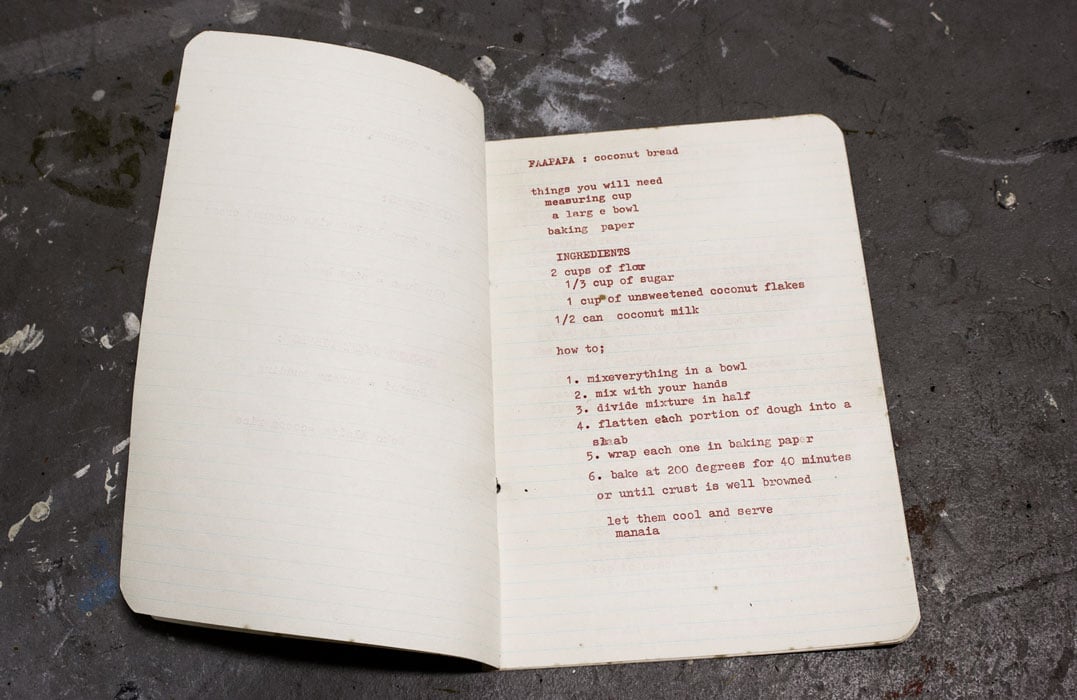 FAAPAPA : coconut bread
things you will need
measuring cup
a larg e bowl
baking paper
INGREDIENTS
2 cups of flour
1/3 cup of sugar
1 cup of unsweetened coconut flakes
1/2 can coconut milk
how to;
1. mixeverything in a bowl
2. mix with your hands
3. divide mixture in half
4. flatten each portion of dough into a
slaab
5. wrap each one in baking paper
6. bake at 200 degrees for 40 minutes
or until crust is well browned
let them cool and serve
manaia